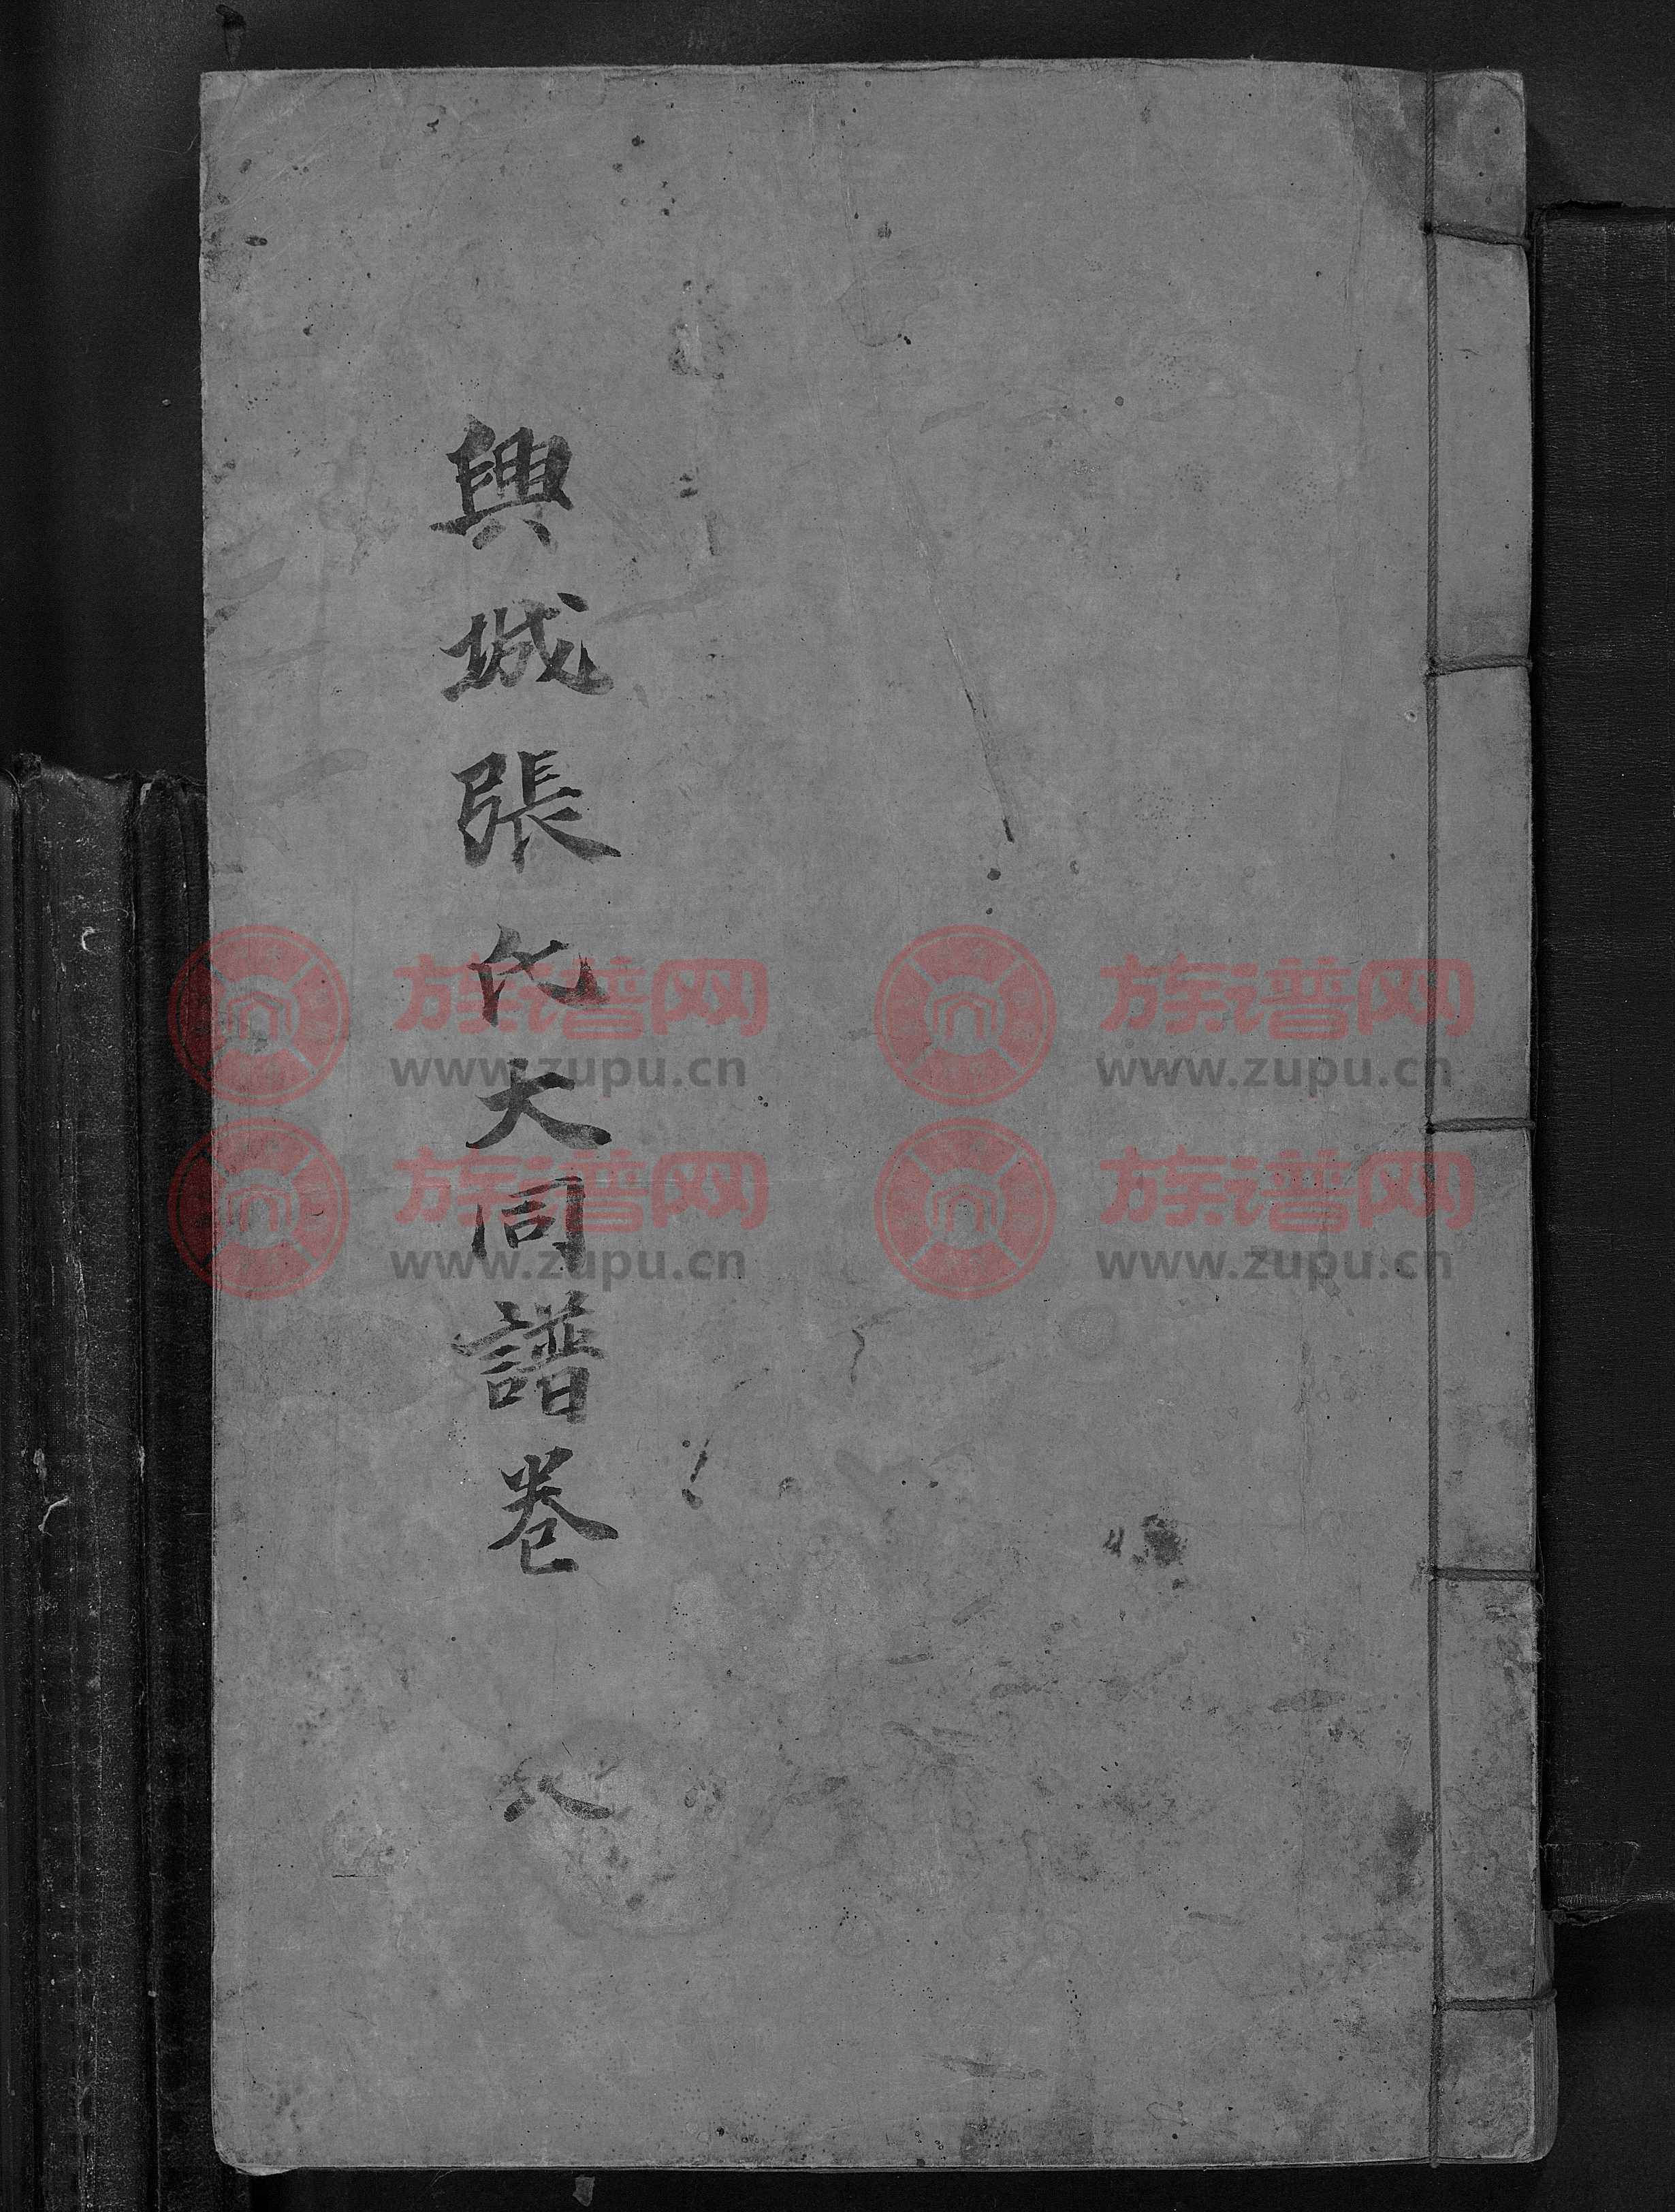 興城張氏大同譜卷 八
族谱网
www.zupu.cn
族谱网
www.zupu.cn
族谱网
www.zupu.cn
族谱网
www.zupu.cn